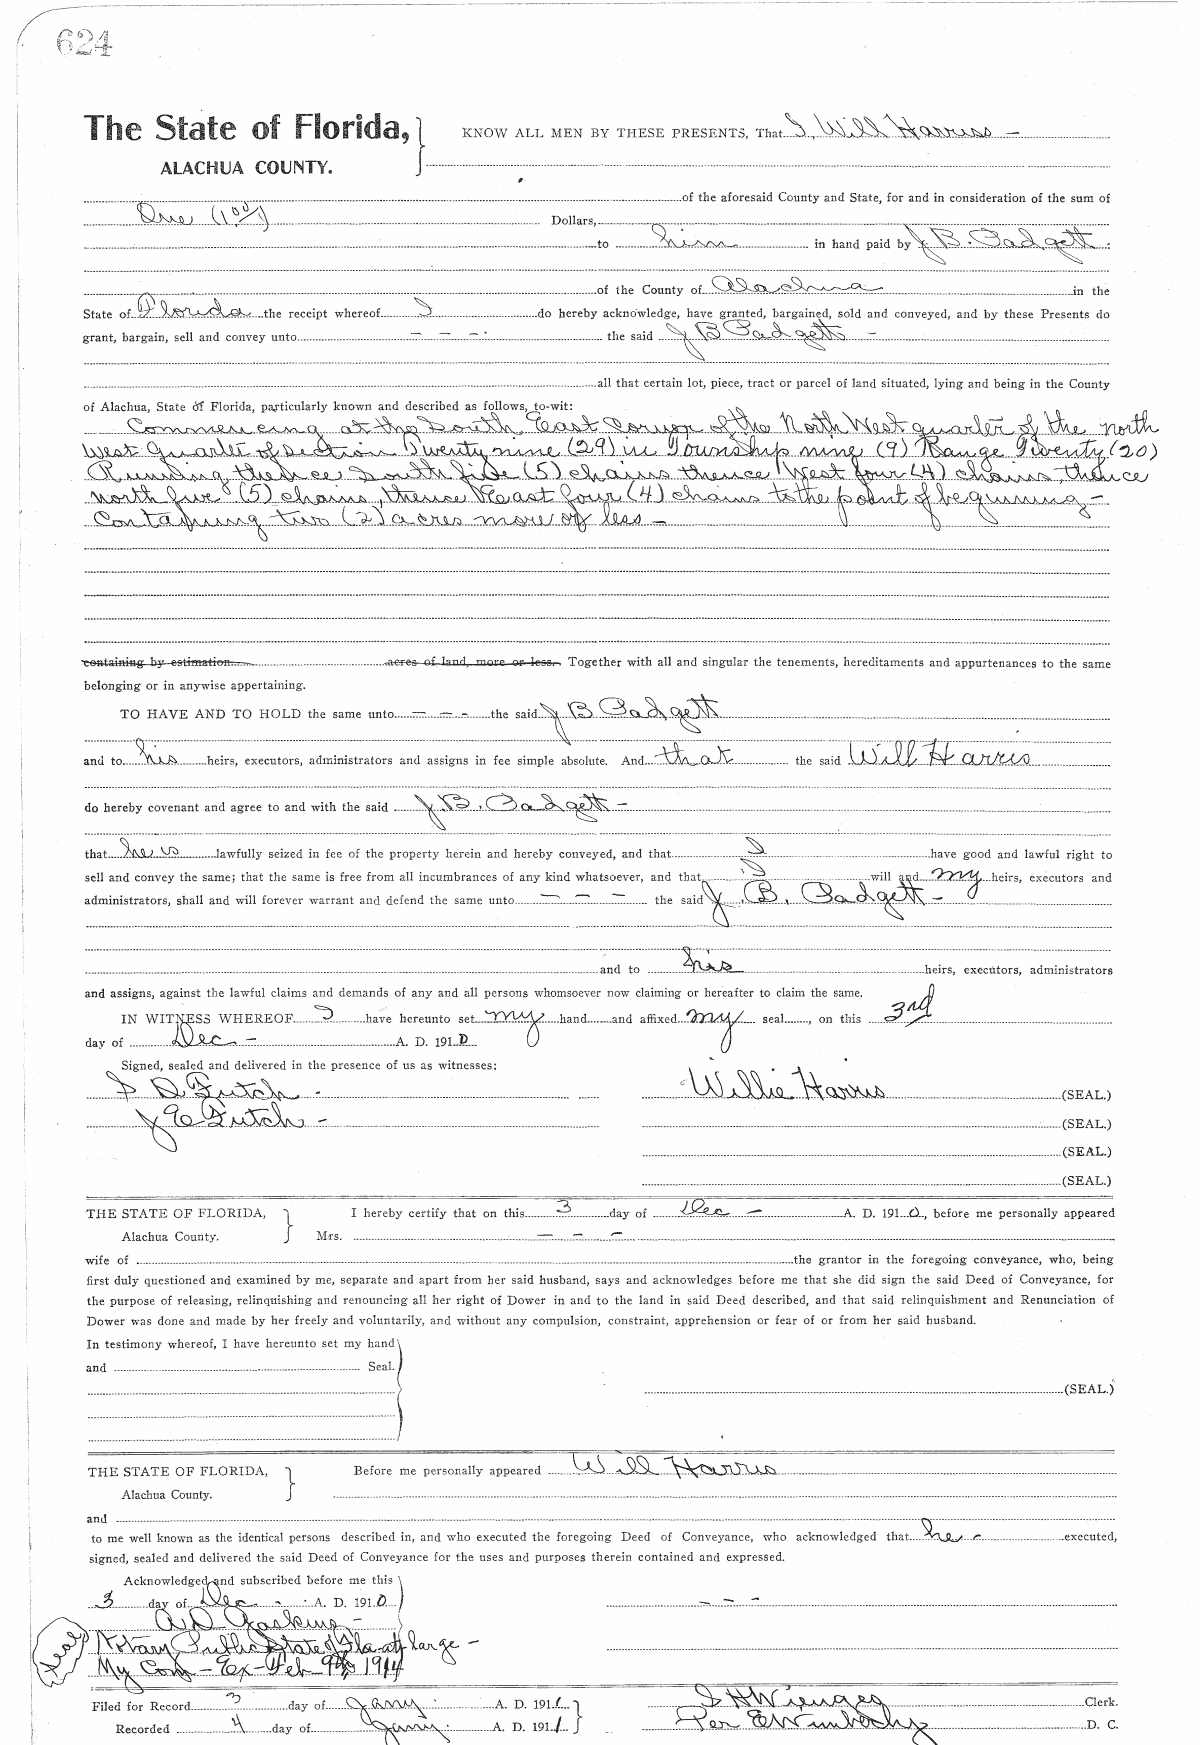 624
The State of Florida, KNOW ALL MEN BY THESE PRESENTS, That I, Will Harriss -
ALACHUA COUNTY.
of the aforesaid County and State, for and in consideration of the sum of
One (1 00/) Dollars,
to him in hand paid by J B. Padgett
of the County of Alachua in the
State of Florida the receipt whereof I do hereby acknowledge, have granted, bargained, sold and conveyed, and by these Presents do
grant, bargain, sell and convey unto - - - the said J B Padgett -
all that certain lot, piece, tract or parcel of land situated, lying and being in the County
of Alachua, State of Florida, particularly known and described as follows, to-wit:
Commencing at the South East Cornor of the North West quarter of the north
West Quarter of Section Twenty nine (29) in Township nine (9) Range Twenty (20)
Running thence South five (5) chains thence West four (4) chains, thence
north five (5) chains, thence East four (4) chains to the point of beginning -
Containing two (2) acres more or less -
containing by estimation acres of land, more or less. Together with all and singular the tenements, hereditaments and appurtenances to the same
belonging or in anywise appertaining.
TO HAVE AND TO HOLD the same unto - - - the said J B Padgett
and to his heirs, executors, administrators and assigns in fee simple absolute. And that the said Will Harris
do hereby covenant and agree to and with the said J. B. Padgett -
that he is lawfully seized in fee of the property herein and hereby conveyed, and that I have good and lawful right to
sell and convey the same; that the same is free from all incumbrances of any kind whatsoever, and that I will and my heirs, executors and
administrators, shall and will forever warrant and defend the same unto - - - the said J. B. Padgett -
and to his heirs, executors, administrators
and assigns, against the lawful claims and demands of any and all persons whomsoever now claiming or hereafter to claim the same.
IN WITNESS WHEREOF I have hereunto set my hand and affixed my seal, on this 3rd
day of Dec - A. D. 1910
Signed, sealed and delivered in the presence of us as witnesses:
D. Futch - Willie Harris (SEAL.)
J E Futch - (SEAL.)
(SEAL.)
(SEAL.)
THE STATE OF FLORIDA, I hereby certify that on this 3 day of Dec - A. D. 1910, before me personally appeared
Alachua County. Mrs. - - -
wife of the grantor in the foregoing conveyance, who, being
first duly questioned and examined by me, separate and apart from her said husband, says and acknowledges before me that she did sign the said Deed of Conveyance, for
the purpose of releasing, relinquishing and renouncing all her right of Dower in and to the land in said Deed described, and that said relinquishment and Renunciation of
Dower was done and made by her freely and voluntarily, and without any compulsion, constraint, apprehension or fear of or from her said husband.
In testimony whereof, I have hereunto set my hand
and Seal.
(SEAL.)
THE STATE OF FLORIDA, Before me personally appeared Will Harris
Alachua County.
and
to me well known as the identical persons described in, and who executed the foregoing Deed of Conveyance, who acknowledged that he - executed,
signed, sealed and delivered the said Deed of Conveyance for the uses and purposes therein contained and expressed.
Acknowledged and subscribed before me this
3 day of Dec - A. D. 1910 - - -
A D Gaskins -
Seal Notary Public State of Fla at large -
My Com - Ex - Feb 1914
Filed for Record 3 day of Jany A. D. 1911. Clerk.
Recorded 4 day of Jany A. D. 1911. Per E Wimberly D. C.